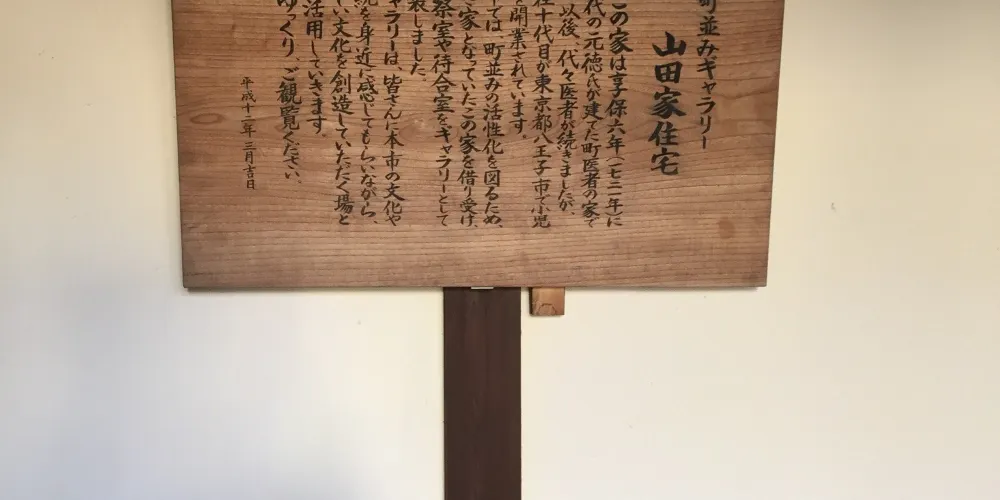 町並みギャラリー
山田家住宅
この家は享保六年(一七二一年)に
代の元徳氏が建てた町医者の家で
以後、代々医者が続きましたが、
十代目が東京都八王子市で小児
を開業されています。
では、町並みの活性化を図るため、
家となっていたこの家を借り受け、
察室や待合室をギャラリーとして
装しました。
ャラリーは、皆さんに本市の文化や
統を身近に感じてもらいながら、
い文化を創造していただく場と
活用していきます
ゆっくり、ご観覧ください。
平成十二年 三月吉日